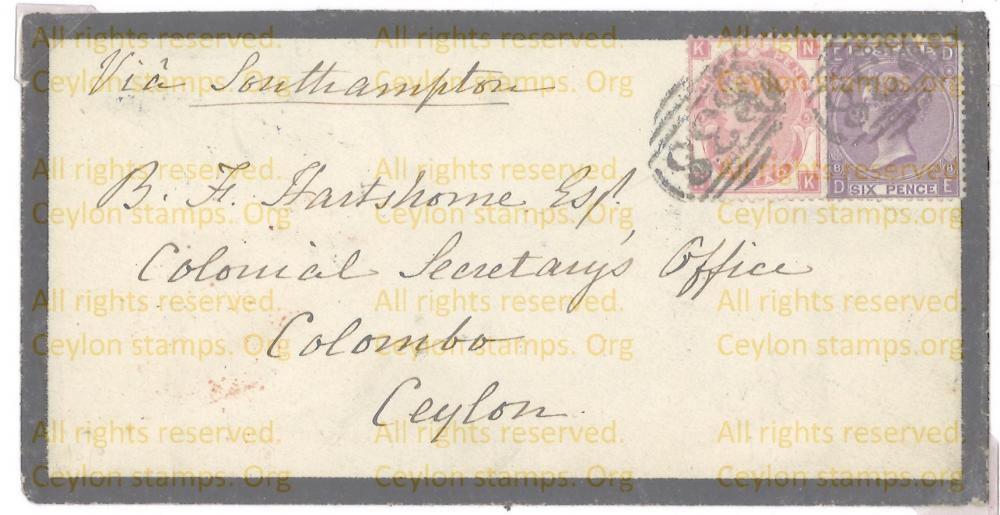 Viâ Southampton
B. F. Hartshorne Esq.,
Colonial Secretary's Office
Colombo
Ceylon.
K N
K
D
D E
SIX PENCE
All rights reserved. All rights reserved. All rights reserved.
Ceylon stamps. Org Ceylon stamps. Org Ceylon stamps.org
All rights reserved. All rights reserved. All rights reserved.
Ceylon stamps. Org Ceylon stamps. Org Ceylon stamps.org
All rights reserved. All rights reserved. All rights reserved.
Ceylon stamps. Org Ceylon stamps. Org Ceylon stamps.org
All rights reserved. All rights reserved. All rights reserved.
Ceylon stamps. Org Ceylon stamps. Org Ceylon stamps.org